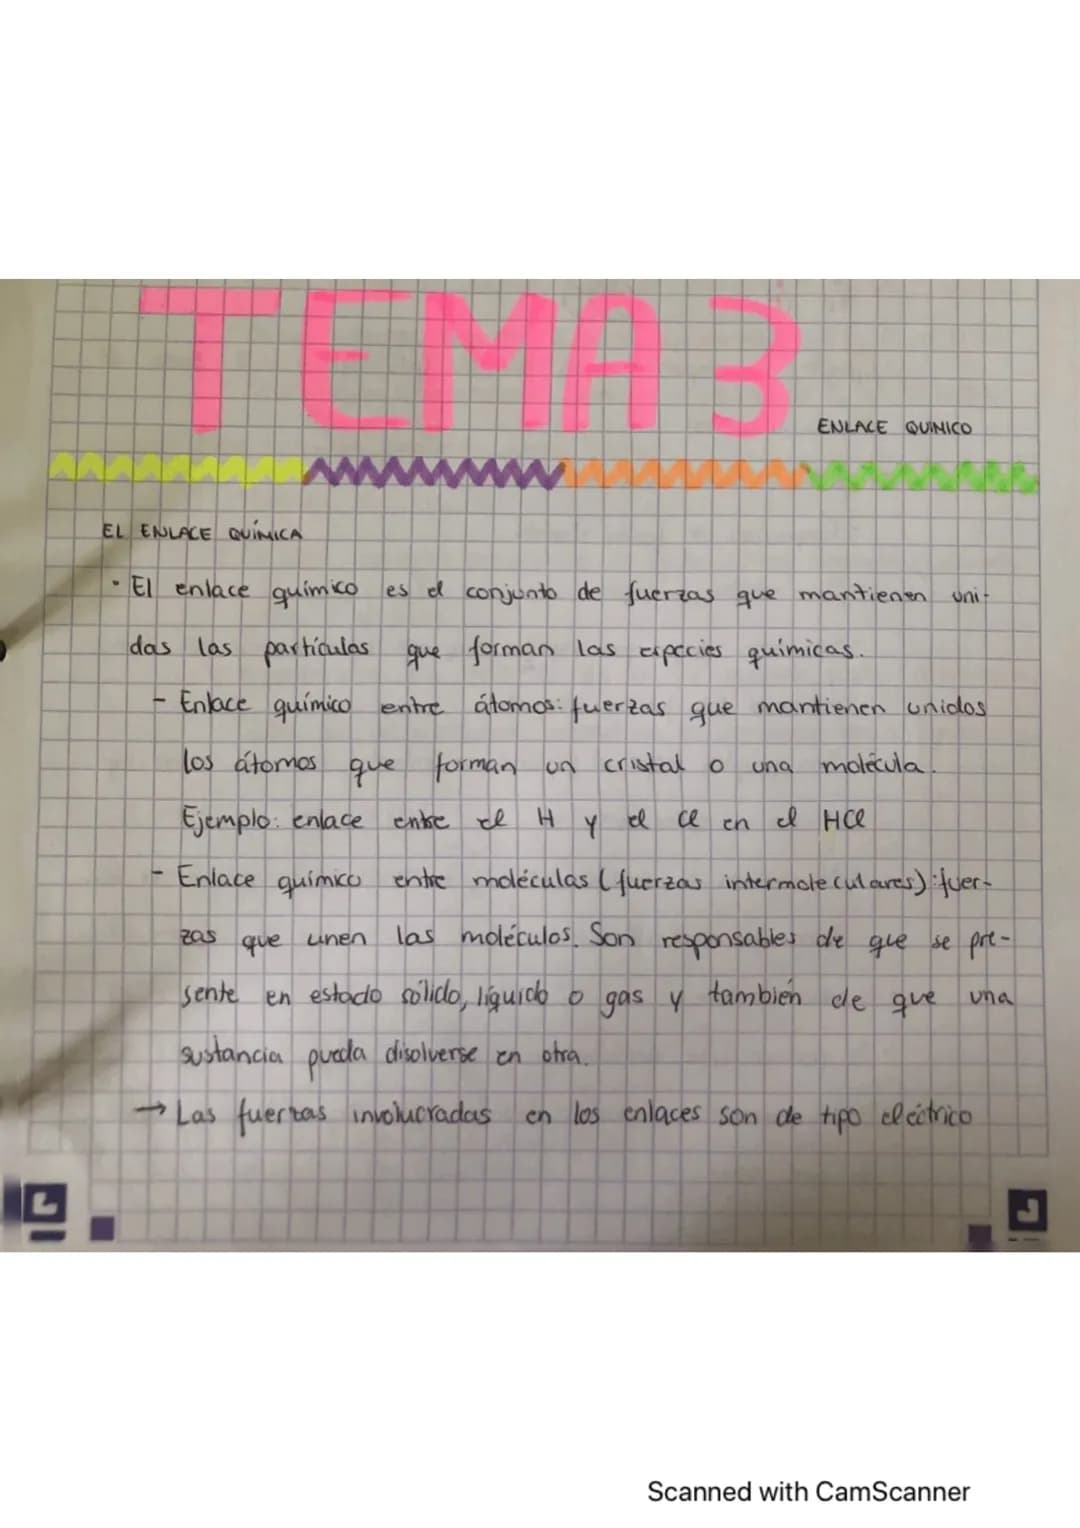 TEMA 3
ENLACE QUIMICO
EL ENLACE QUÍMICA
· El enlace químico es el conjunto de fuerzas que mantienen uni-
das las partículas que forman las especies químicas.
- Enlace químico entre átomos: fuerzas que mantienen unidos
los átomos que forman un cristal o una molécula.
Ejemplo: enlace entre el H y el Cl en el HCl
- Enlace químico entre moléculas (fuerzas intermoleculares): fuer-
zas que unen las moléculas. Son responsables de que se pre-
sente en estado sólido, líquido o gas y también de que una
sustancia pueda disolverse en otra.
→ Las fuerzas involucradas en los enlaces son de tipo eléctrico
Scanned with CamScanner